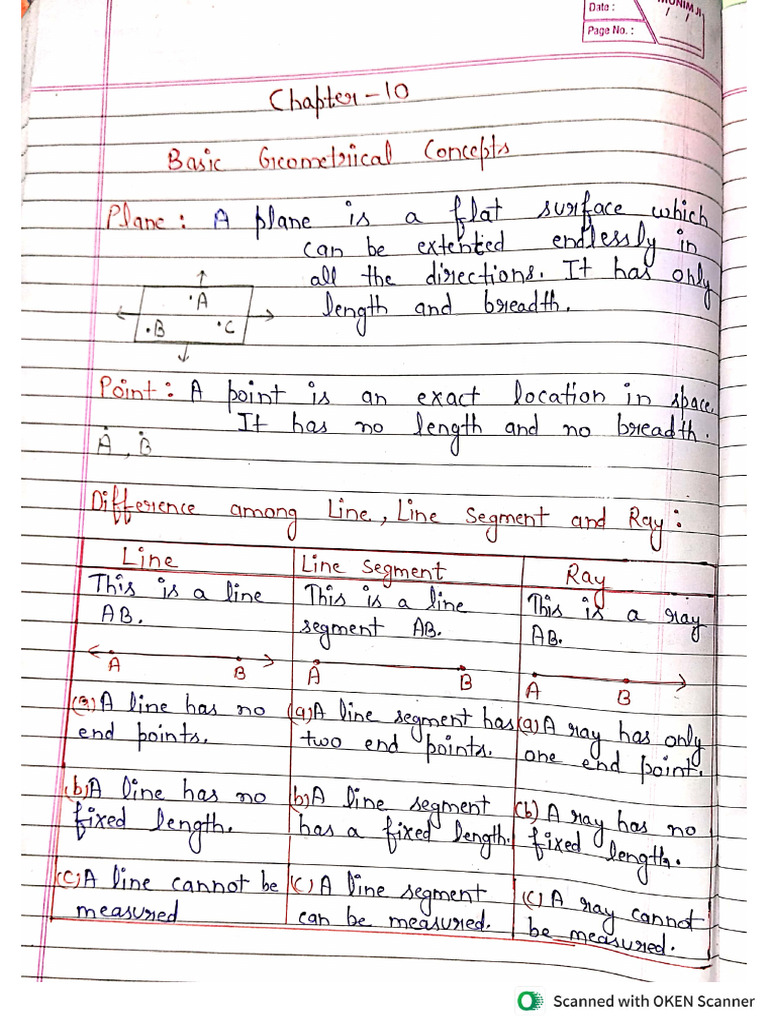 Date :
MUNIM JI
Page No. :
Chapter-10
Basic Geometriical Concepts
Plane : A plane is a flat surface which
can be extented endlessly in
all the directions. It has only
length and breadth.
A
B
C
Point : A point is an exact location in space.
It has no length and no breadth.
A, B
Difference among Line, Line Segment and Ray :
Line
Line Segment
Ray
This is a line
AB.
This is a line
segment AB.
This is a ray
AB.
A B
A B
A B
(a) A line has no
end points.
(a) A line segment has
two end points.
(a) A ray has only
one end point.
(b) A line has no
fixed length.
(b) A line segment
has a fixed length.
(b) A ray has no
fixed length.
(c) A line cannot be
measured
(c) A line segment
can be measured.
(c) A ray cannot
be measured.
Scanned with OKEN Scanner